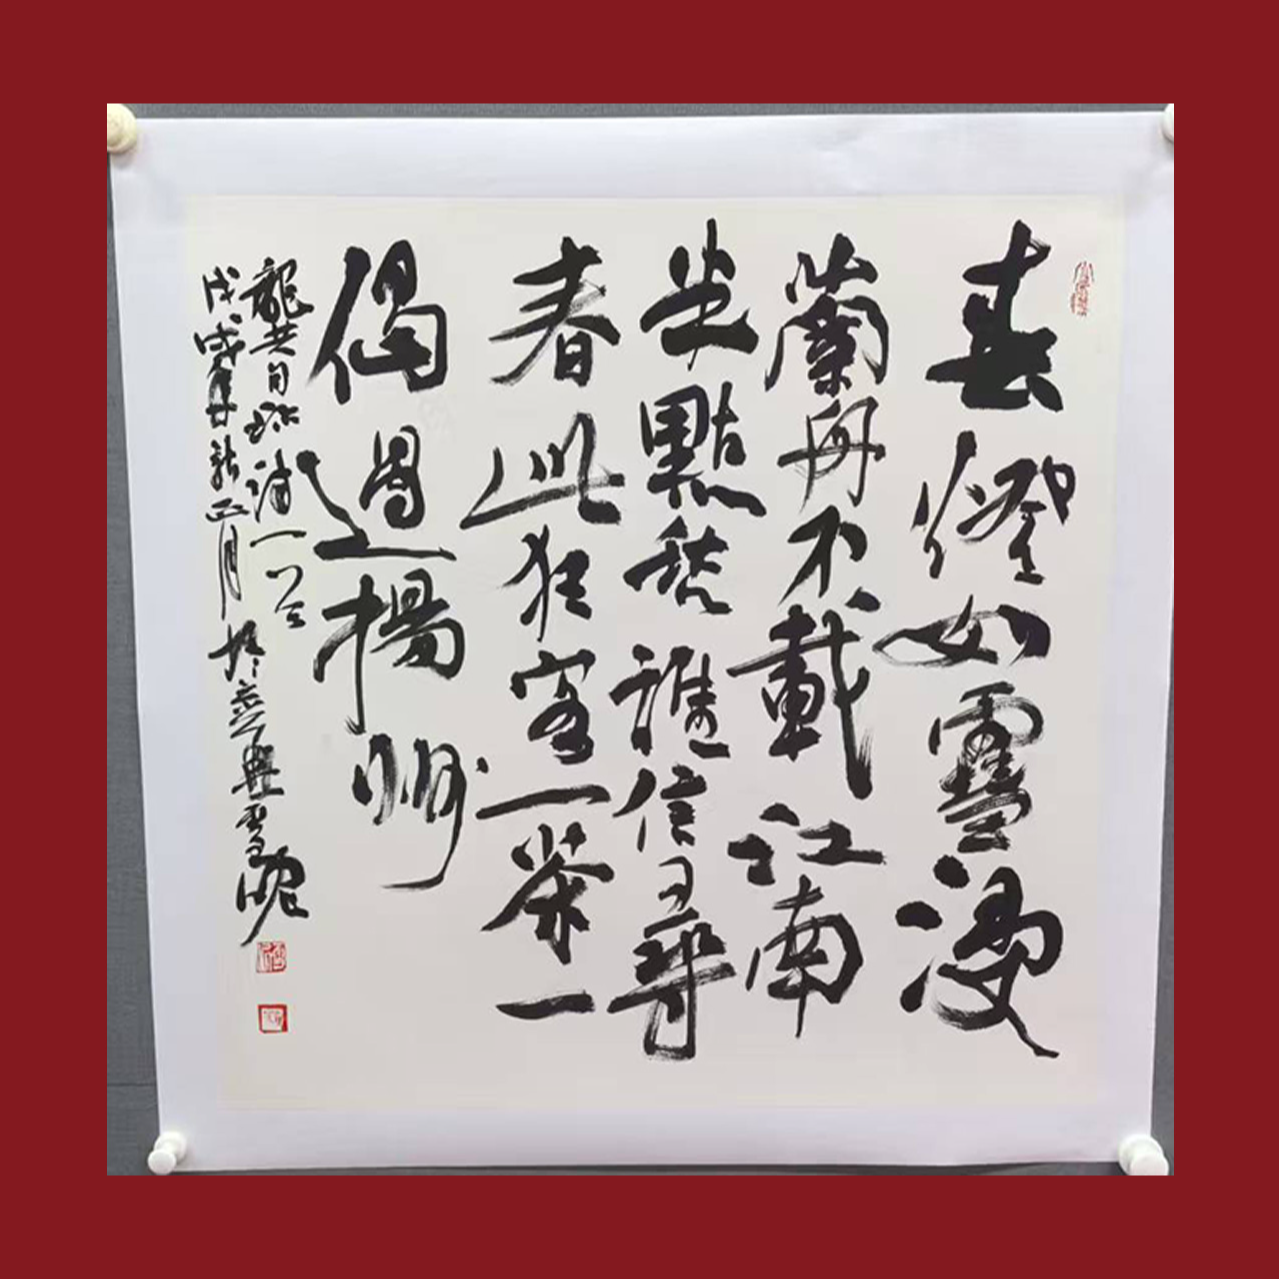 春燈如雪浸
蘭舟不載江南
半點愁誰信尋
春此狂客一茶一
偈過揚州
龔自珍詩一首
戊戌年新正月於